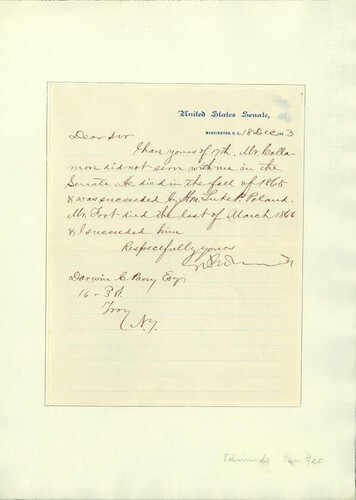 United States Senate,
WASHINGTON, D.C. 18 Dec, 1883
Dear Sir
I have yours of 17th. Mr. Colla-
mer did not serve with me in the
Senate. He died in the fall of 1865
& was succeeded by Hon. Luke P. Poland.
Mr. Foot died the last of March 1866
& I succeeded him
Respectfully yours
Darwin C. Pavey Esq
16 - 3 St.
Troy
N.Y.
Edmunds Sen Geo